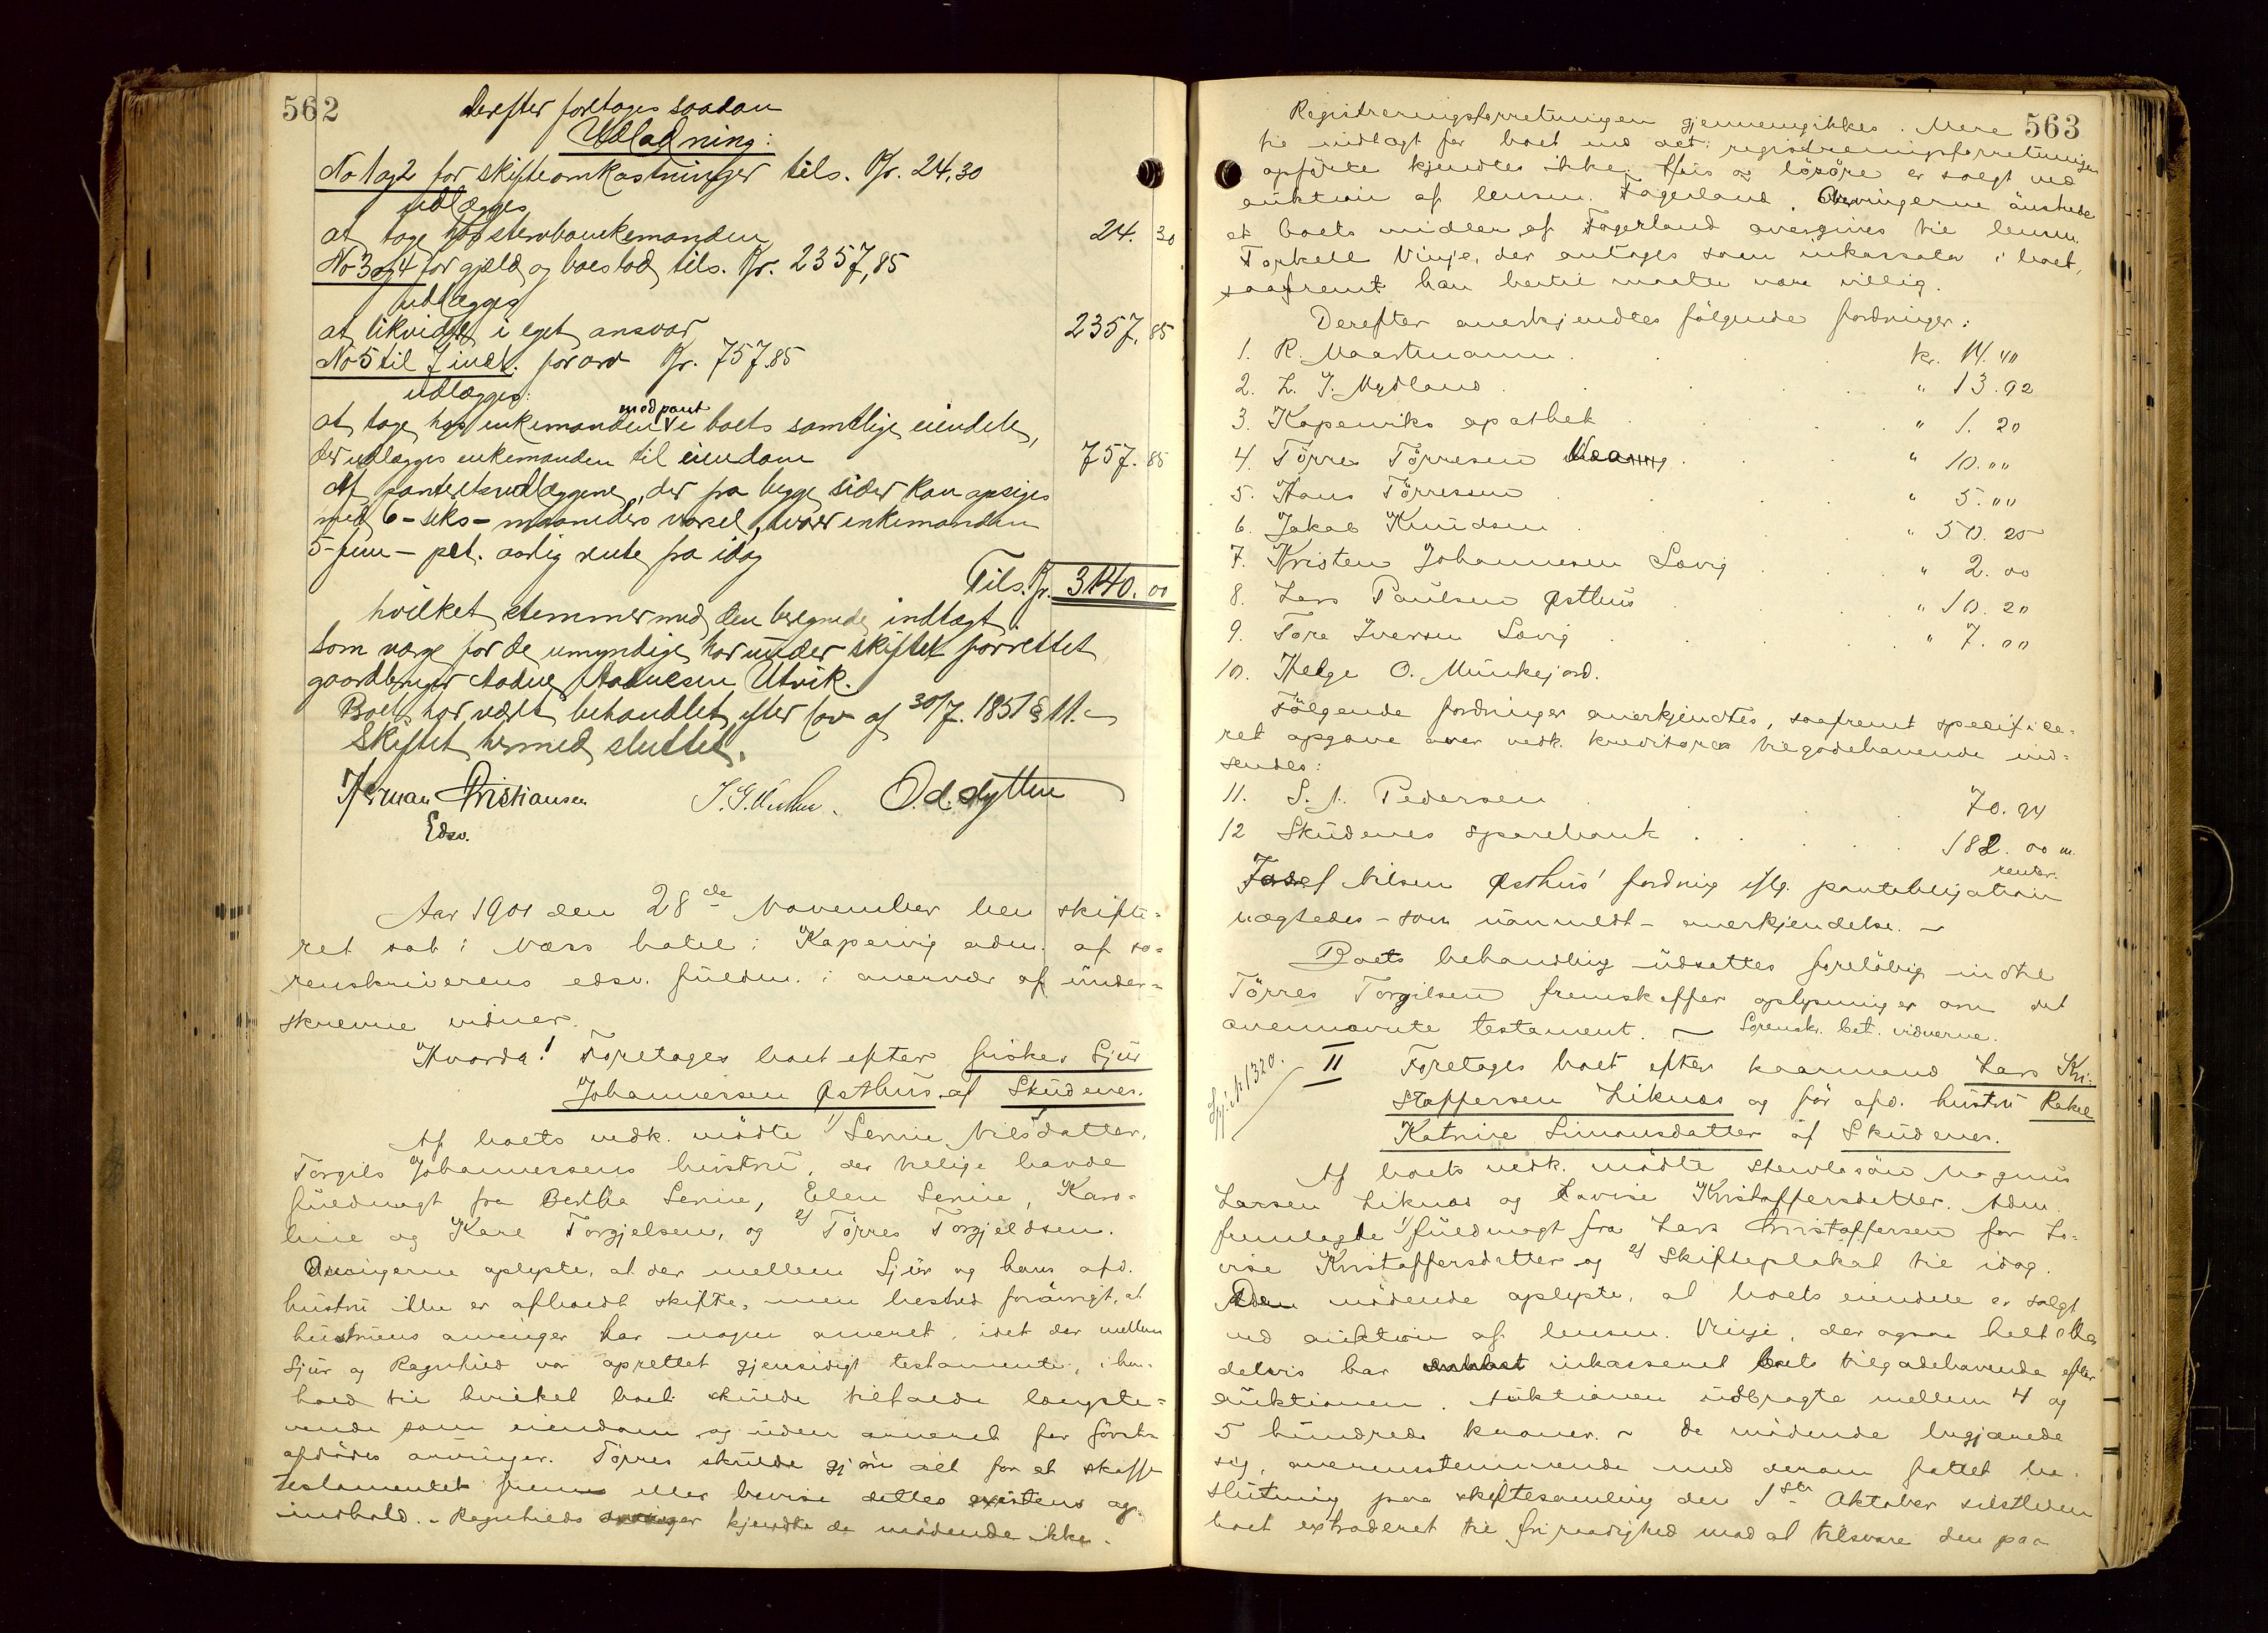 562
Derefter foretages saadan
Udlodning:
No 1 og 2 for skifteomkostninger tils. Kr. 24,30
udlægges
at tage hos stervboenkemanden 24. 30
No 3 og 4 for gjæld og boeslod tils. Kr. 2357,85
udlægges
at likvidere i eget ansvar 2357. 85
No 5 til 7 incl. for arv Kr. 757.85
udlægges:
at tage hos enkemanden med pant i boets samtlige eiendele,
der udlægges enkemanden til eiendom 757. 85
Af panteretsudlæggene, der fra begge sider kan opsiges
med 6 - seks - maaneders varsel, svarer enkemanden
5 - fem - pct. aarlig rente fra idag
Tils. Kr. 3140. 00
hvilket stemmer med den beregnede indtægt.
Som værge for de umyndige har under skiftet forrettet
gaardbruger Aadne Aadnesen Utvik.
Boet har været behandlet efter lov af 30/7. 1851 § 11. -
Skiftet hermed sluttet.
Herman Christiansen O. d. Lytten
Edsv.
Aar 1901 den 28de November blev skifte-
ret sat i Næss hotel i Kopervig adm. af so-
renskriverens edsv. fuldm. i overvær af under-
skrevne vidner.
Hvorda! Foretages boet efter fisker Sjur
Johannessen Østhus af Skudenes.
Af boets vedk. mødte 1) Serine Nilsdatter,
Torgils Johannessens hustru, der tillige havde
fuldmagt fra Berthe Serine, Elen Serine, Karo-
line og Kare Torgjelsen, og 2) Tørres Torgjeldsen.
Arvingerne oplyste, at der mellem Sjur og hans afd.
hustru ikke er afholdt skifte, men bestred forøvrigt, at
hustruens arvinger har nogen arveret, idet der mellem
Sjur og Regnhild var oprettet gjensidigt testamente, i hen-
hold til hvilket boet skulde tilfalde længstle-
vende som eiendom og uden arveret for først
afdødes arvinger. Tørres skulde gjøre alt for at skaffe
testamentet frem eller bevise dettes existens og
indhold. - Regnhilds arvinger kjendte de mødende ikke.
563
Registreringsforretningen gjennemgikkes. Mere
til indtægt for boet end det i registreringsforretningen
opførte kjendtes ikke. Hus og løsøre er solgt ved
auktion af lensm. Fagerland. Arvingerne ønskede
at boets midler af Fagerland overgives til lensm.
Torkell Vinje, der antages som inkassator i boet,
saafremt han hertil maatte være villig.
Derefter anerkjendtes følgende fordringer:
1. R. Maastmann kr. 14. 40
2. L. J. Mydland " 13. 92
3. Koperviks apothek " 1. 20
4. Tørres Tørresen " 10. ""
5. Hans Tørresen " 5. ""
6. Jakob Knudsen " 50. 20
7. Kristen Johannesen Sævig " 2. 00
8. Lars Paulsen Østhus " 10. 20
9. Tore Iversen Sævig " 7. 00
10. Helge O. Munkejord.
Følgende fordringer anerkjendtes, saafremt specifice-
ret opgave over vedk. kreditorers tilgodehavende ind-
sendes:
11. S. A. Pedersen 70. 94
12 Skudenes sparebank 182. 00 m.
renter.
Josef Nilsen Østhus' fordring iflg. pantobligation
nægtedes - som uanmeldt - anerkjendelse. -
Boets behandling udsattes foreløbig indtil
Tørres Torgilsen fremskaffer oplysninger om det
ovennævnte testament. - Sorenskr. bet. vidnerne.
II Foretages boet efter kaarmand Lars Kri-
stoffersen Liknes og før afd. hustru Rakel
Katrine Simonsdatter af Skudenes.
Af boets vedk. mødte stervbosøn Magnus
Larsen Liknes og Lovise Kristoffersdatter. Adm.
fremlagde 1) fuldmagt fra Lars Kristoffersen for Lo-
vise Kristoffersdatter og 2) Skifteplakat til idag.
De mødende oplyste, at boets eiendele er solgt
ved auktion af lensm. Vinje, der ogsaa helt eller
delvis har inkasseret boets tilgodehavende efter
auktionen. Auktionen udbragte mellem 4 og
5 hundrede kroner. - De mødende begjærede
sig, overensstemmende med derom fattet be-
slutning paa skiftesamling den 1ste Oktober sidstleden
boet extraderet til fri raadighed mod at tilsvare den paa